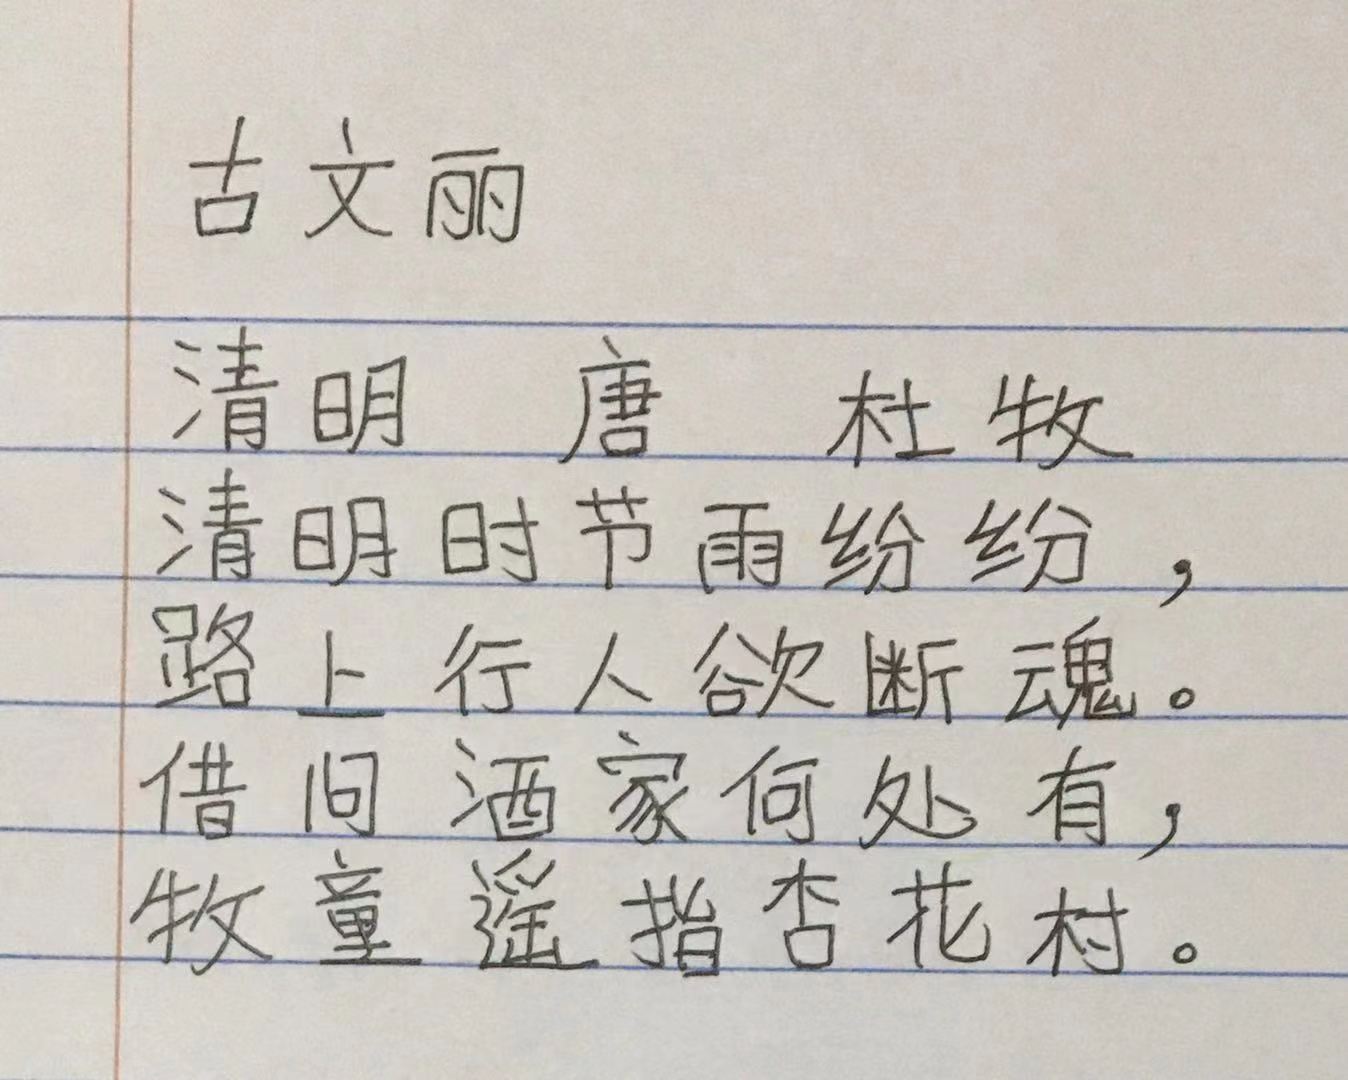 古文丽
清明 唐 杜牧
清明时节雨纷纷，
路上行人欲断魂。
借问酒家何处有，
牧童遥指杏花村。